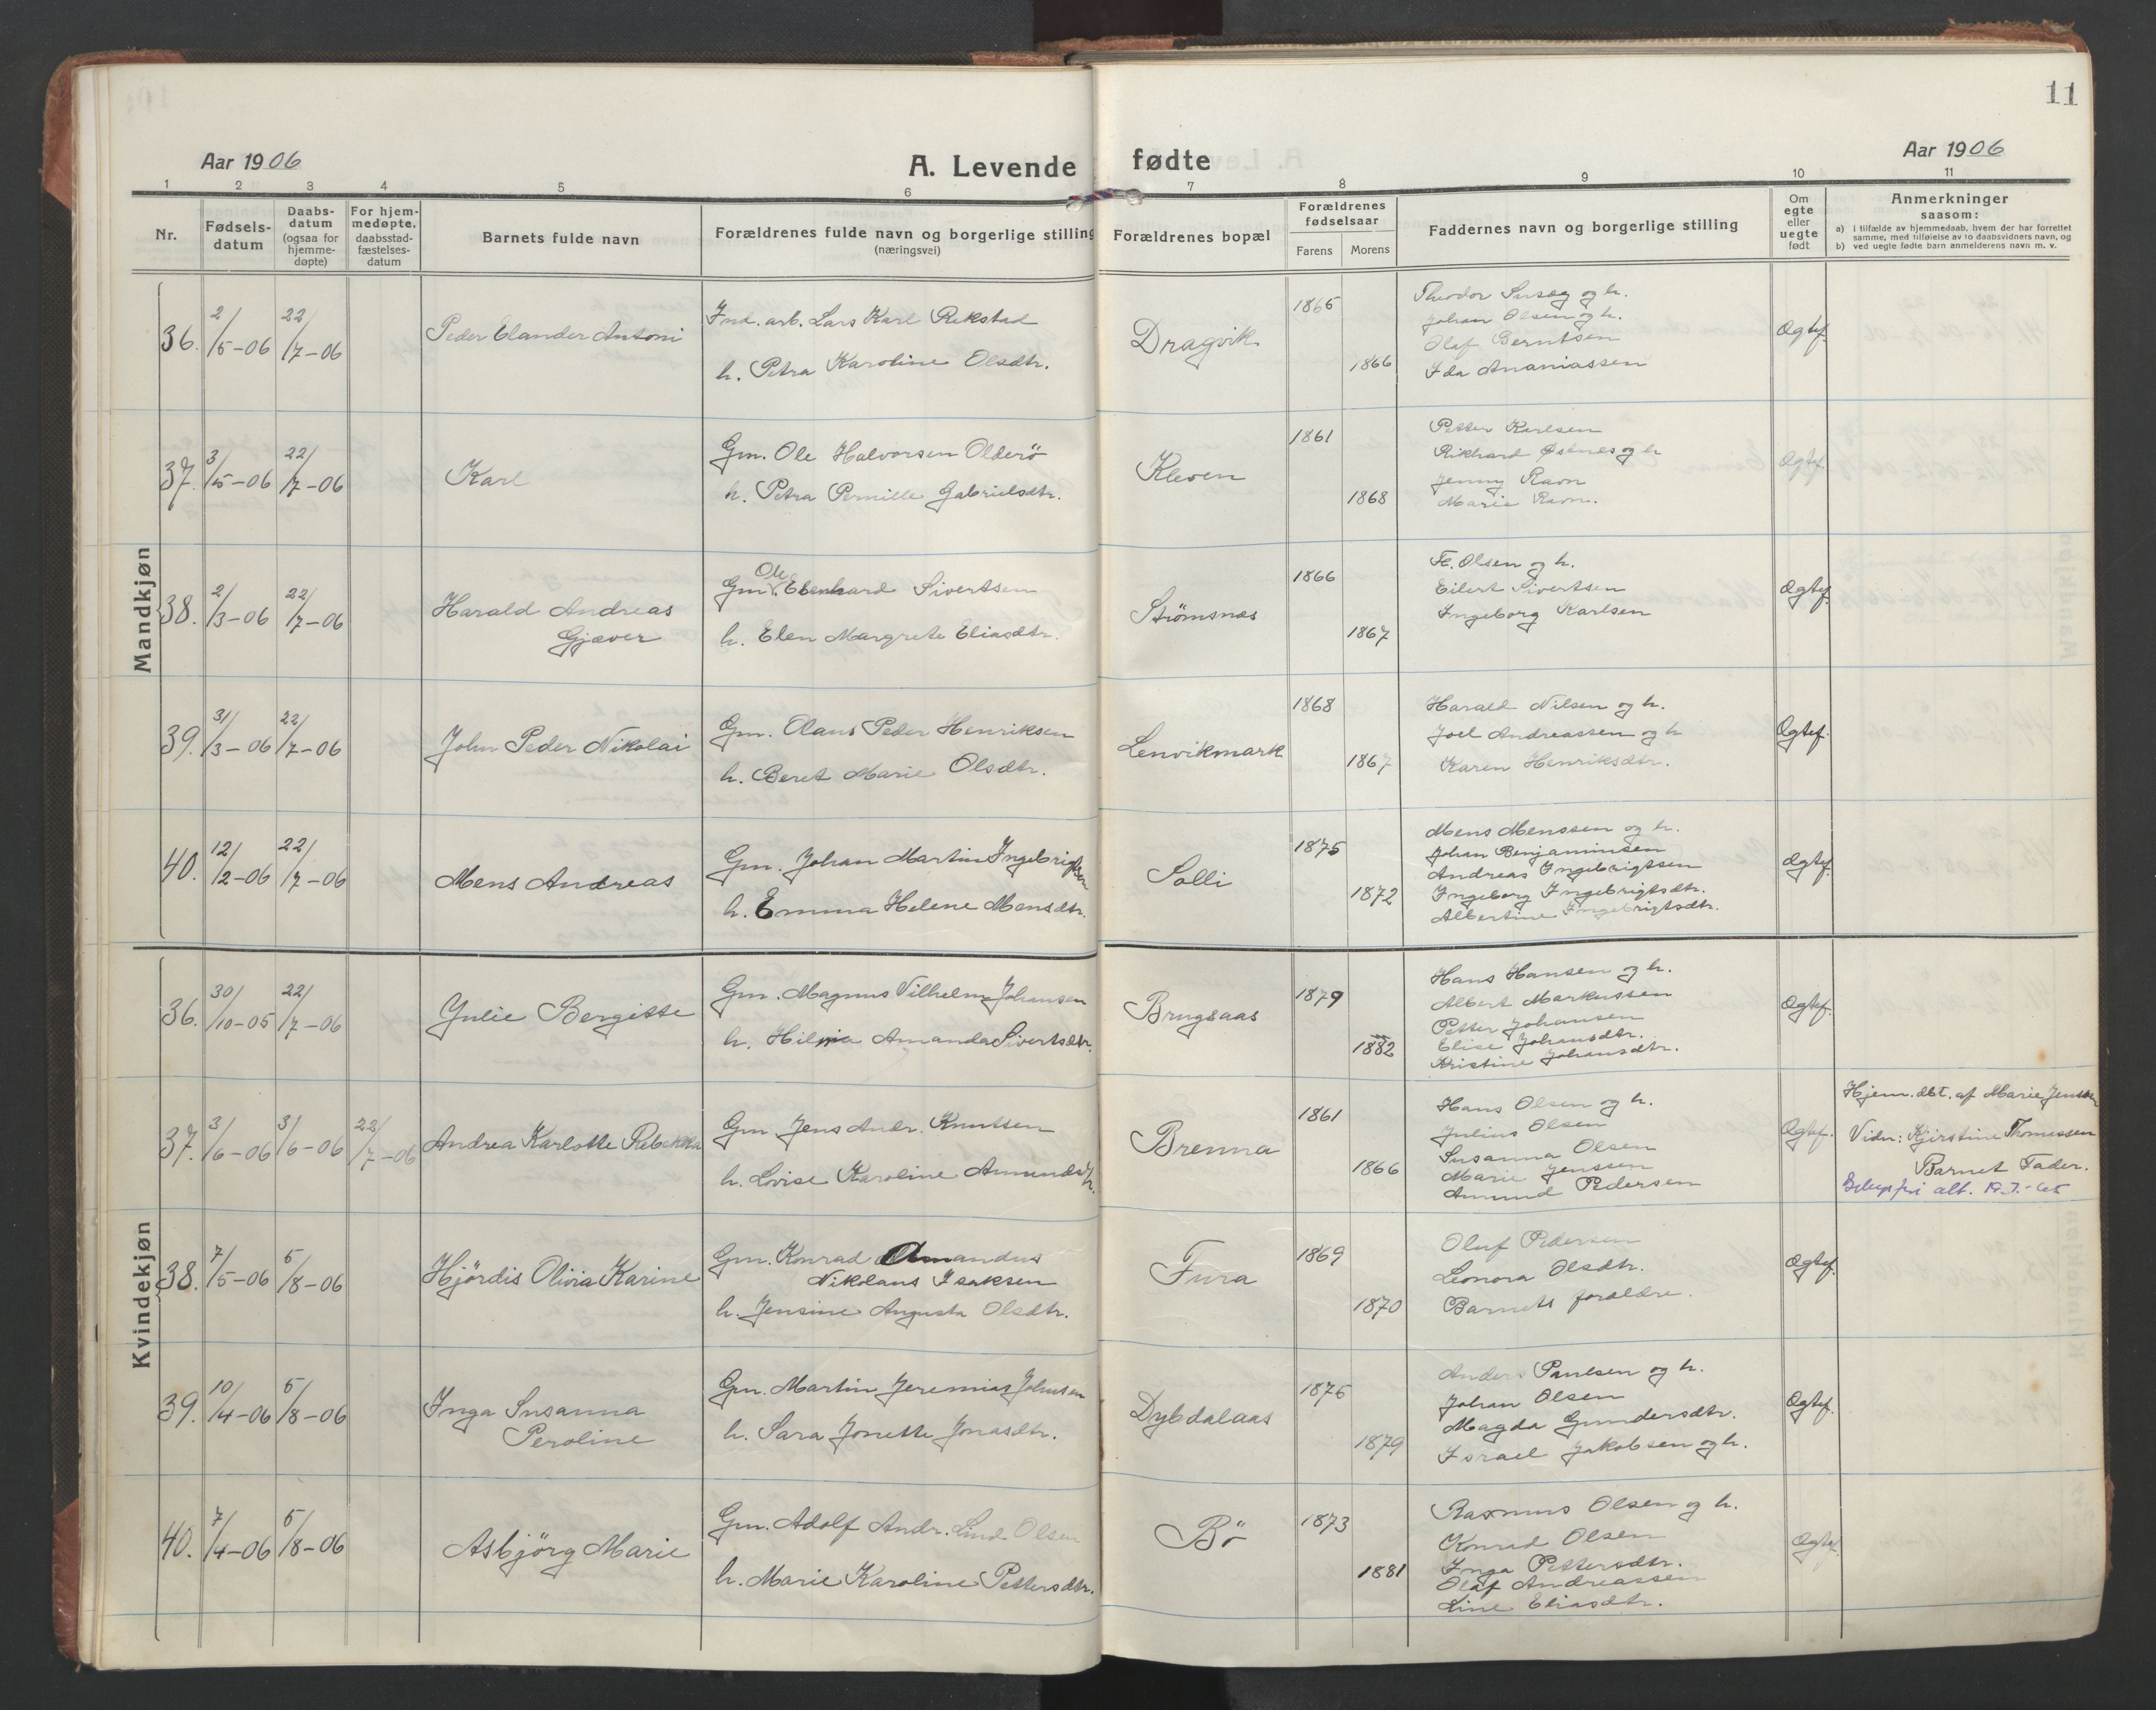 11
Aar 1906
A. Levende fødte
Aar 1906
1 2 3 4 5 6 7 8 9 10 11
Nr.
Fødsels-
datum
Daabs-
datum
(ogsaa for
hjemme-
døpte)
For hjem-
medøpte,
daabsstad-
fæstelses-
datum
Barnets fulde navn
Forældrenes fulde navn og borgerlige stilling
(næringsvei)
Forældrenes bopæl
Forældrenes
fødselsaar
Farens Morens
Faddernes navn og borgerlige stilling
Om
egte
eller
uegte
født
Anmerkninger
saasom:
a) i tilfælde av hjemmedaab, hvem der har forrettet
samme, med tilføielse av to daabsvidners navn, og
b) ved uegte fødte barn anmelderens navn m. v.
Mandkjøn
36. 2/5-06 22/7-06 Peder Elander Antoni
Ind. arb. Lars Karl Rekstad
h. Petra Karoline Olsdtr.
Dragvik 1865 1866
Theodor og h.
Johan Olsen og h.
Olaf Berntsen
Ida Ananiassen
Ægtef.
37. 3/5-06 22/7-06 Karl
Gm. Ole Halvorsen Olderö
h. Petra Pernille Gabrielsdtr.
Kleven 1861 1868
Petter Karlsen
Rikhard Østnes og h
Jenny Ravn
Marie Ravn.
Ægtef.
38. 2/3-06 22/7-06 Harald Andreas
Gjæver
Ole
Gm. Edenhard Sivertsen
h. Elen Margrete Eliasdtr.
Strömsnes 1866 1867
Fr. Olsen og h.
Eilert Sivertsen
Ingeborg Karlsen
Ægtef.
39. 31/3-06 22/7-06 John Peder Nikolai
Gm. Olaus Peder Henriksen
h. Beret Marie Olsdtr.
Lenvikmark 1868 1867
Harald Nilsen og h.
Joel Andreassen og h
Karen Henriksdtr.
Ægtef.
40. 12/2-06 22/7-06 Mens Andreas
Gm. Johan Martin Ingebrigtsen
h. Emma Helene Mensdtr.
Solli 1875 1872
Mens Menssen og h.
Johan Benjaminsen
Andreas Ingebrigtsen
Ingeborg Ingebrigtsdtr.
Albertine Ingebrigtsdtr.
Ægtef.
Kvindekjøn
36. 30/10-05 22/7-06 Julie Bergitte
Gm. Magnus Vilhelm Johansen
h. Hilma Amanda Sivertsdtr.
Brugsaas 1879 1882
Hans Hansen og h.
Albert Markussen
Petter Johansen
Elise Johansdtr.
Kristine Johansdtr.
Ægtef.
37. 3/6-06 3/6-06 22/7-06 Andrea Karlotte Rebekka
Gm. Jens Andr. Knutsen
h. Lovise Karoline Amundsdtr.
Brenna 1861 1866
Hans Olsen og h.
Julius Olsen
Susanna Olsen
Marie Jenssen
Amund Pedersen
Ægtef.
Hjem. dbt. af Marie Jenssen
Vidn: Kjirstine Thomassen
Barnet Fader.
alt. 19.7.-65
38. 7/5-06 5/8-06 Hjördis Olivia Karine
Gm. Konrad Amandus
Nikolaus Isaksen
h. Jensine Augusta Olsdtr.
Fura 1869 1870
Oluf Pedersen
Leonora Olsdtr.
Barnets forældre.
Ægtef.
39. 10/4-06 5/8-06 Inga Susanna
Peroline
Gm. Martin Jeremias Johnsen
h. Sara Jonette Jonasdtr.
Dybdalaas 1876 1879
Anders Paulsen og h.
Johan Olsen
Magda Gundersdtr.
Israel Jakobsen og h.
Ægtef.
40. 7/4-06 5/8-06 Asbjörg Marie
Gm. Adolf Andr. Lind Olsen
h. Marie Karoline Pettersdtr.
Bö 1873 1881
Rasmus Olsen og h.
Konrad Olsen
Inga Pettersdtr.
Olaf Andreassen
Line Eliasdtr.
Ægtef.